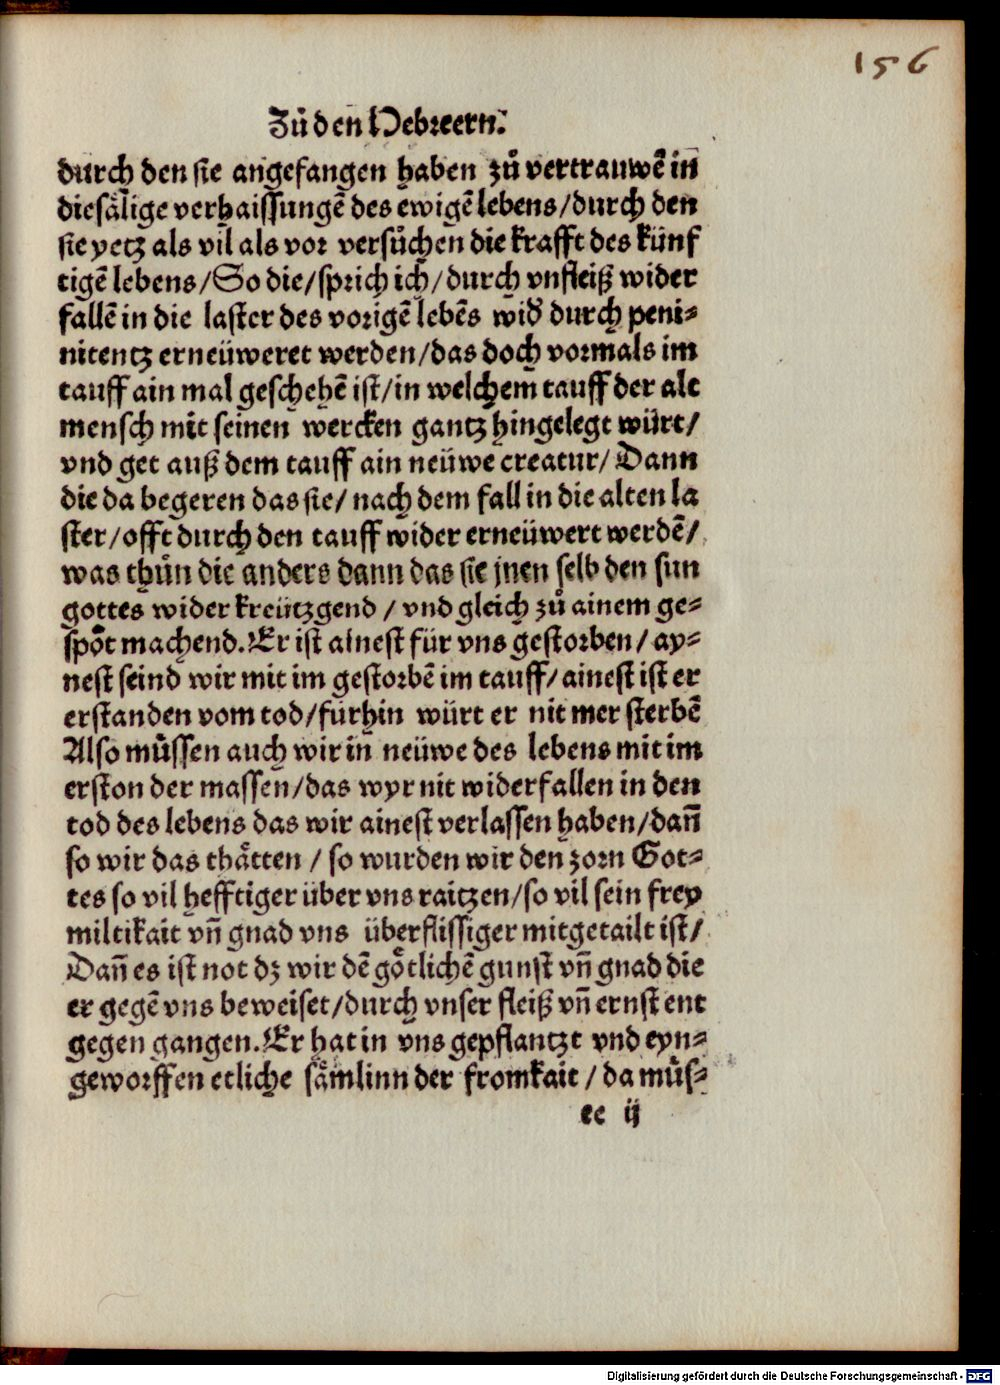 156
Zů den Hebreern.
durch den sie angefangen haben zů vertrauwē in
die sälige verhaissungē des ewigē lebens/durch den
sie yetz als vil als vor versůchen die krafft des künf
tigē lebens/So die/sprich ich/durch vnfleiß wider
fallē in die laster des vorigē lebēs wid̕ durch peni⸗
nitentz erneüweret werden/das doch vormals im
tauff ain mal geschehē ist/in welchem tauff der alt
mensch mit seinen wercken gantz hingelegt würt/
vnd get auß dem tauff ain neüwe creatur/Dann
die da begeren das sie/nach dem fall in die alten la
ster/offt durch den tauff wider erneüwert werdē/
was thůn die anders dann das sie jnen selb den sun
gottes wider kreützgend/vnd gleich zů ainem ge⸗
spôt machend.Er ist ainest für vns gestorben/ay⸗
nest seind wir mit im gestorbē im tauff/ainest ist er
erstanden vom tod/fürhin würt er nit mer sterbē
Also müssen auch wir in neüwe des lebens mit im
erston der massen/das wyr nit widerfallen in den
tod des lebens das wir ainest verlassen haben/dañ
so wir das thätten/so wurden wir den zorn Got⸗
tes so vil hefftiger über vns raitzen/so vil sein frey
miltikait vñ gnad vns überflissiger mitgetailt ist/
Dañ es ist not dz wir dē götlichē gunst vñ gnad die
er gegē vns beweiset/durch vnser fleiß vñ ernst ent
gegen gangen.Er hat in vns gepflantzt vnd eyn⸗
geworffen etliche sämlinn der fromkait/da můs⸗
ee ij
Digitalisierung gefördert durch die Deutsche Forschungsgemeinschaft - DFG